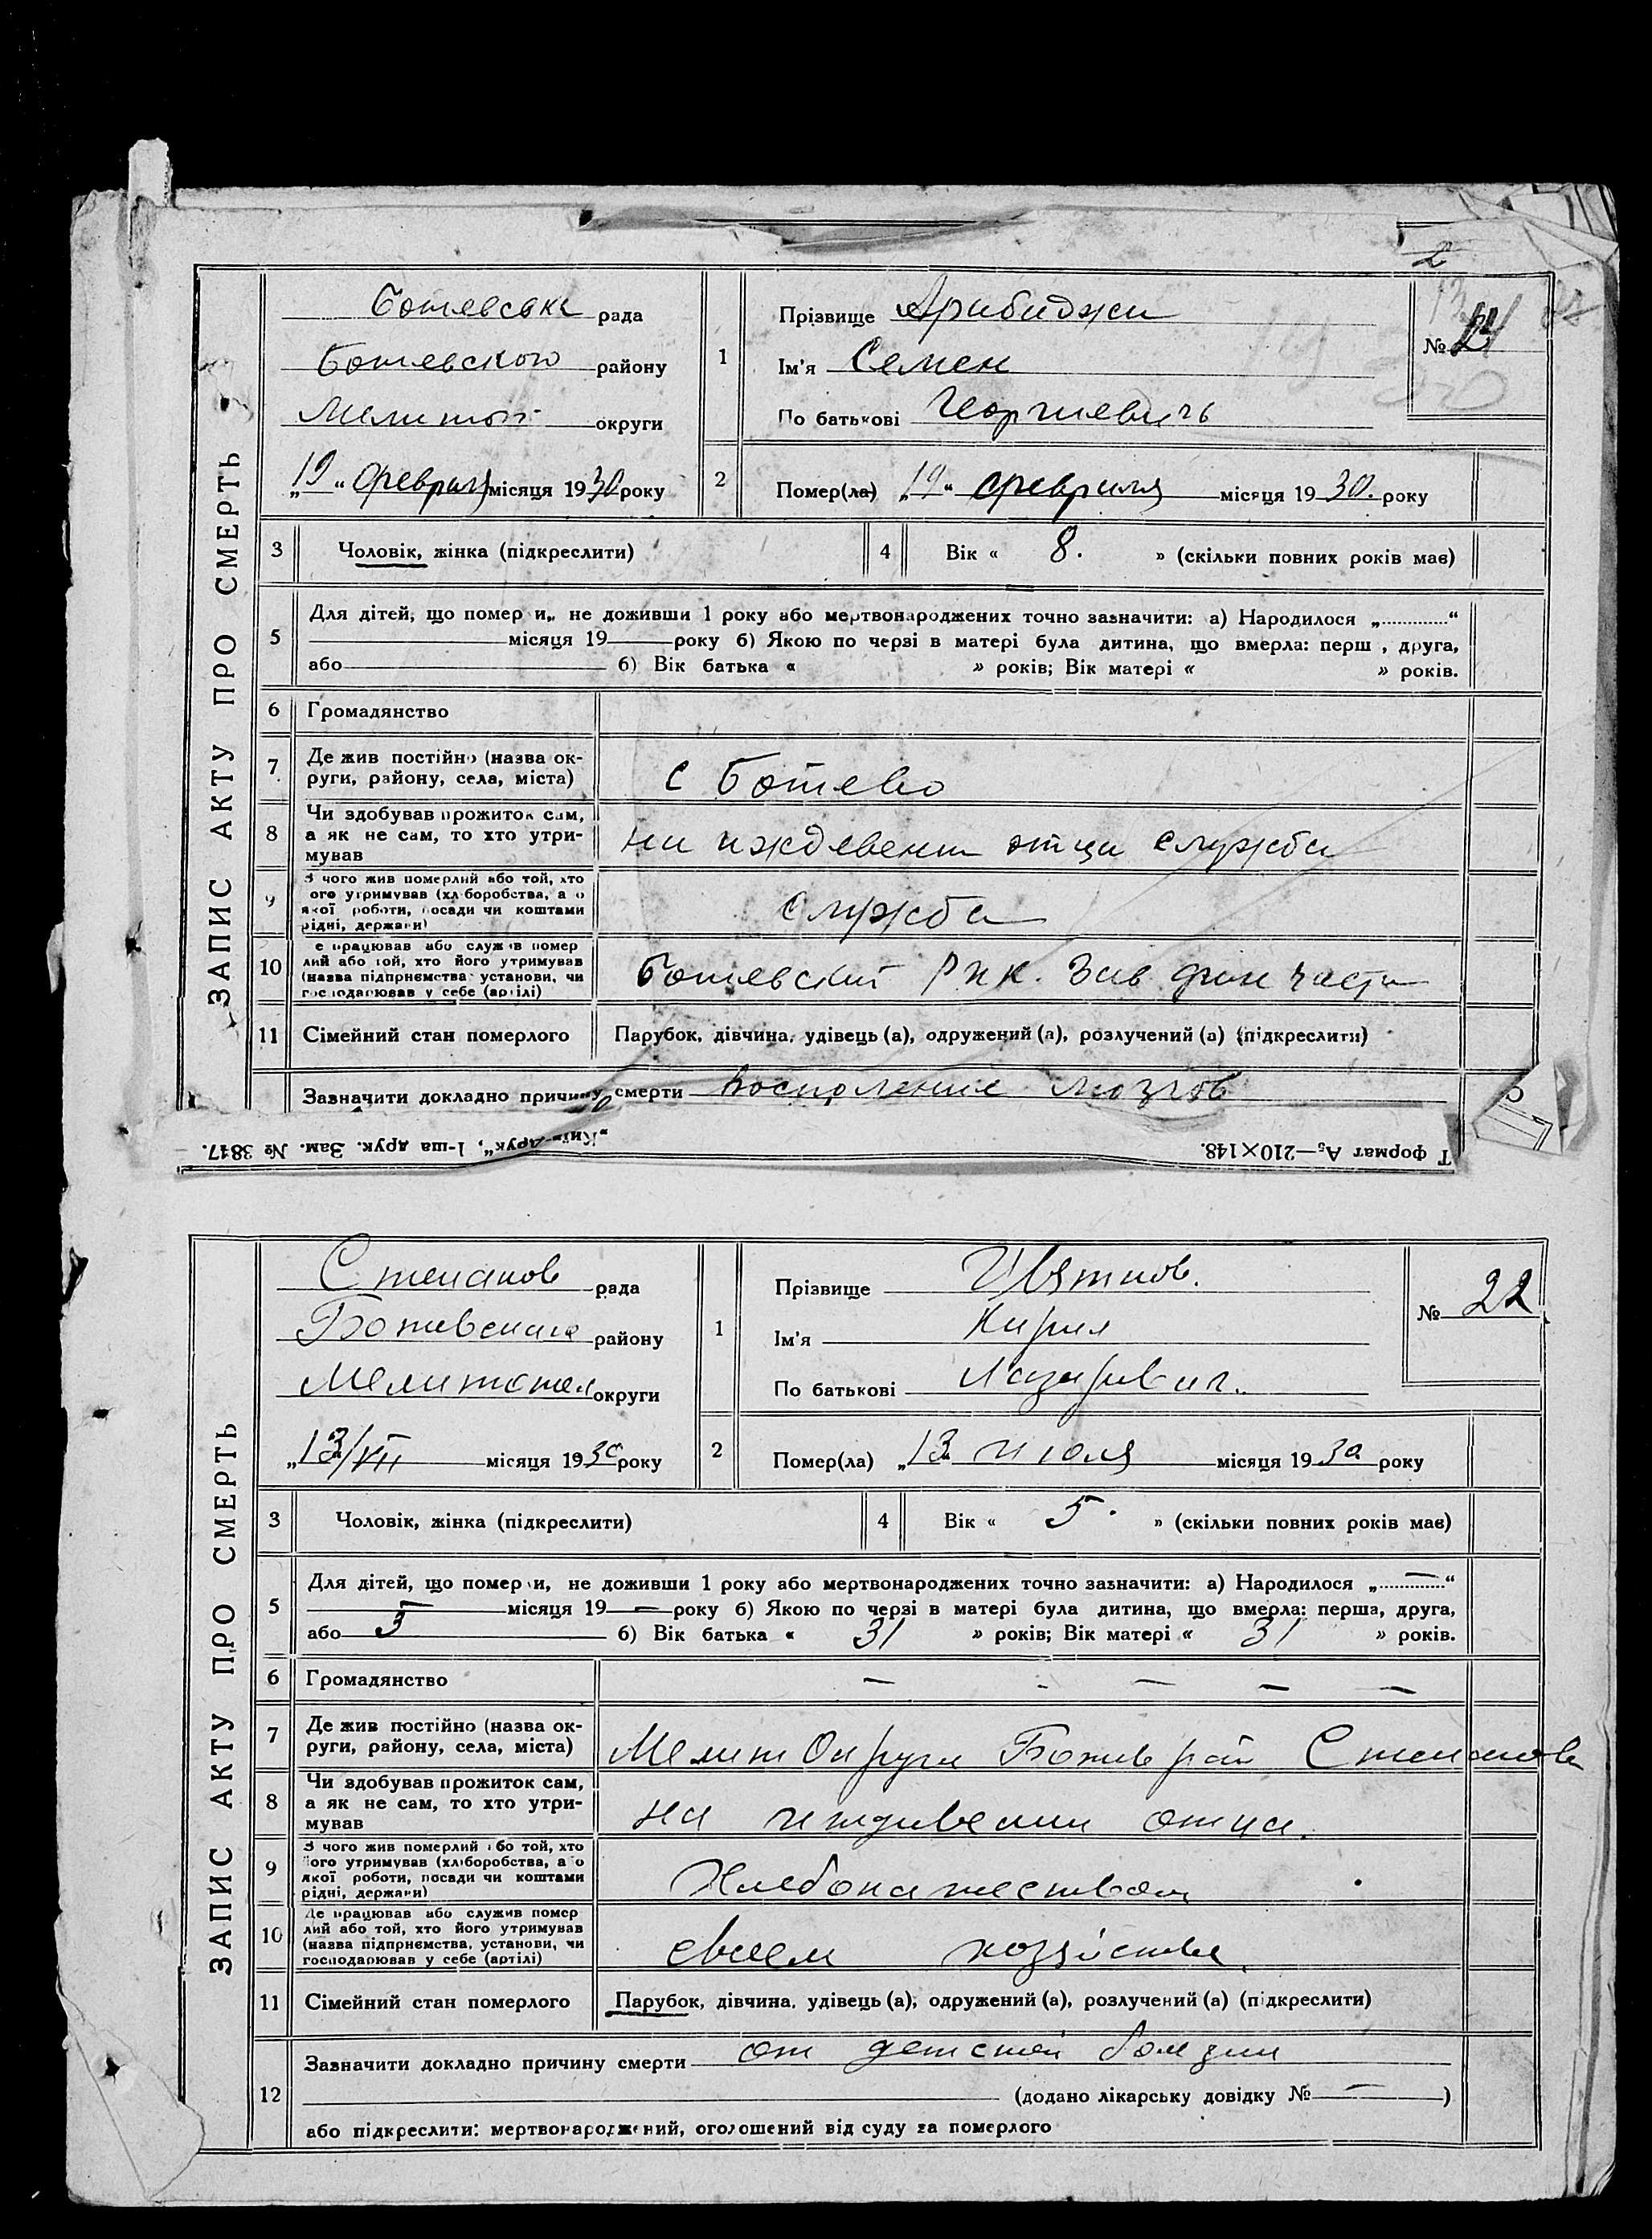 2
ЗАПИС АКТУ ПРО СМЕРТЬ
Ботевська рада
Ботевского району
Мелитоп округи
„19“ февраля місяця 1930 року
1
Прізвище Арабаджи
Ім'я Семен
По батькові Георгиевичь
№ 21
2
Помер(ла) „19“ февраля місяця 1930. року
3 Чоловік, жінка (підкреслити)
4 Вік « 8. » (скільки повних років має)
5
Для дітей, що помер и„ не доживши 1 року або мертвонароджених точно зазначити: а) Народилося „............“
місяця 19 року б) Якою по черзі в матері була дитина, що вмерла: перш , друга,
або б) Вік батька « » років; Вік матері « » років.
6 Громадянство
7 Де жив постійно (назва ок-
руги, району, села, міста)
с Ботево
8 Чи здобував прожиток сам,
а як не сам, то хто утри-
мував
на иждевении отца служба
9 З чого жив померлий або той, хто
ого утримував (хл боробства, а о
якої роботи, посади чи коштами
рідні, держави)
служба
10 е працював або служив помер
лий або той, хто його утримував
(назва підприємства установи, чи
господарював у себе (артілі)
Ботевский Рик. Зав фин части
11 Сімейний стан померлого Парубок, дівчина, удівець (а), одружений (а), розлучений (а) (підкреслити)
Зазначити докладно причину смерти Воспаление мозгов
Т Формат А₅—210×148.
„Київ-Друк“, 1-ша друк. Зам. № 3847.
ЗАПИС АКТУ ПРО СМЕРТЬ
Степанов рада
Ботевского району
Мелитопол округи
„13/VII місяця 1930 року
1
Прізвище
Ім'я Кирил
По батькові Лазаревич.
№ 22
2
Помер(ла) „13 июля місяця 1930 року
3 Чоловік, жінка (підкреслити)
4 Вік « 5. » (скільки повних років має)
5
Для дітей, що помер и, не доживши 1 року або мертвонароджених точно зазначити: а) Народилося „.....—.....“
— місяця 19 — року б) Якою по черзі в матері була дитина, що вмерла: перша, друга,
або 3 б) Вік батька « 31 » років; Вік матері « 31 » років.
6 Громадянство — - — — —
7 Де жив постійно (назва ок-
руги, району, села, міста)
Мелит Округи Ботев рай Степанов
8 Чи здобував прожиток сам,
а як не сам, то хто утри-
мував
на иждивении отца.
9 З чого жив померлий або той, хто
ого утримував (хліборобства, а о
якої роботи, посади чи коштами
рідні, держави)
Хлебопашеством
10 Де працював або служив помер
лий або той, хто його утримував
(назва підприємства, установи, чи
господарював у себе (артілі)
своем хозяйстве
11 Сімейний стан померлого Парубок, дівчина, удівець (а), одружений (а), розлучений (а) (підкреслити)
12
Зазначити докладно причину смерти от детской болезни
(додано лікарську довідку № — )
або підкреслити: мертвонароджений, оголошений від суду за померлого